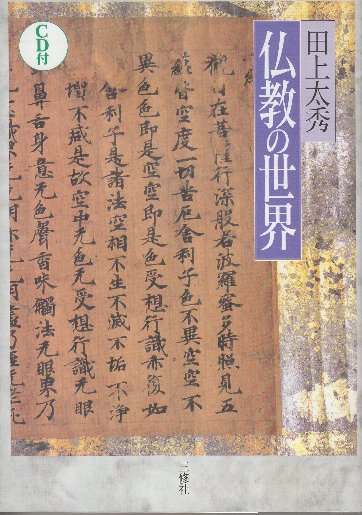 CD付
田上太秀
仏教の世界
觀自在菩薩行深般若波羅蜜多時照見五
蘊皆空度一切苦厄舍利子色不異空空不
異色色即是空空即是色受想行識亦復如
舍利子是諸法空相不生不滅不垢不淨
增不減是故空中无色无受想行識无眼
鼻舌身意无色聲香味觸法无眼界乃
三修社